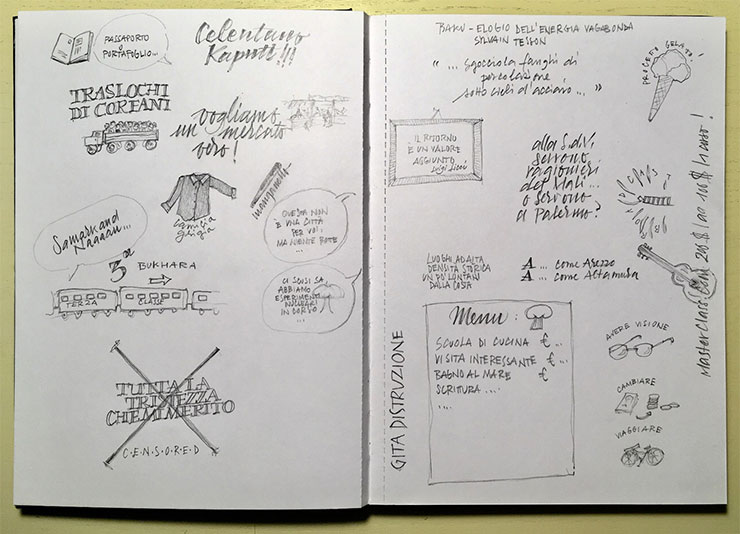 PASSAPORTO
O
PORTAFOGLIO...
Celentano
Kaputt!!!
TRASLOCHI
DI COREANI
vogliamo
un mercato
vero!
camicia
grigia
manganello
QUESTA NON
È UNA CITTÀ
PER VOI,
MA NIENTE BOTTE
...
Samarkand
Naaaan...
3ª
BUKHARA
TERZA CLASSE
CI SCUSI SA,
ABBIAMO
ESPERIMENTI
NUCLEARI
IN CORSO
...
TUTTA LA
TRISTEZZA
CHE MI MERITO
C·E·N·S·O·R·E·D
BAKU - ELOGIO DELL'ENERGIA VAGABONDA
SYLVAIN TESSON
"... Sgocciola fanghi di
percolazione
sotto cieli d'acciaio... »
GELATO!
IL RITORNO
È UN VALORE
AGGIUNTO
alla S.d.V.
servono
ragionieri
del Mali...
o servono
a Palermo?
LUOGHI AD ALTA
DENSITÀ STORICA
UN PO' LONTANI
DALLA COSTA
A ... come Arezzo
A ... come Altamura
MasterClass.com 200$/ao 100$/1 corso!
GITA DISTRUZIONE
Menu:
SCUOLA DI CUCINA € ...
VISITA INTERESSANTE € ...
BAGNO AL MARE €
SCRITURA ....
....
AVERE VISIONE
CAMBIARE
VIAGGIARE